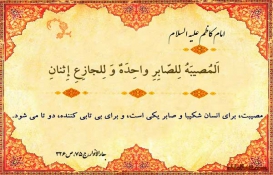 امام کاظم علیه السلام
اَلْمُصیبَةُ لِلصّابِرِ واحِدَةٌ وَ لِلجازِعِ اِثنانِ
مصیبت، برای انسان شکیبا و صابر یکی است، و برای بی تابی کننده، دو تا می شود.
بحارالانوار، ج۷۵، ص۳۲۶